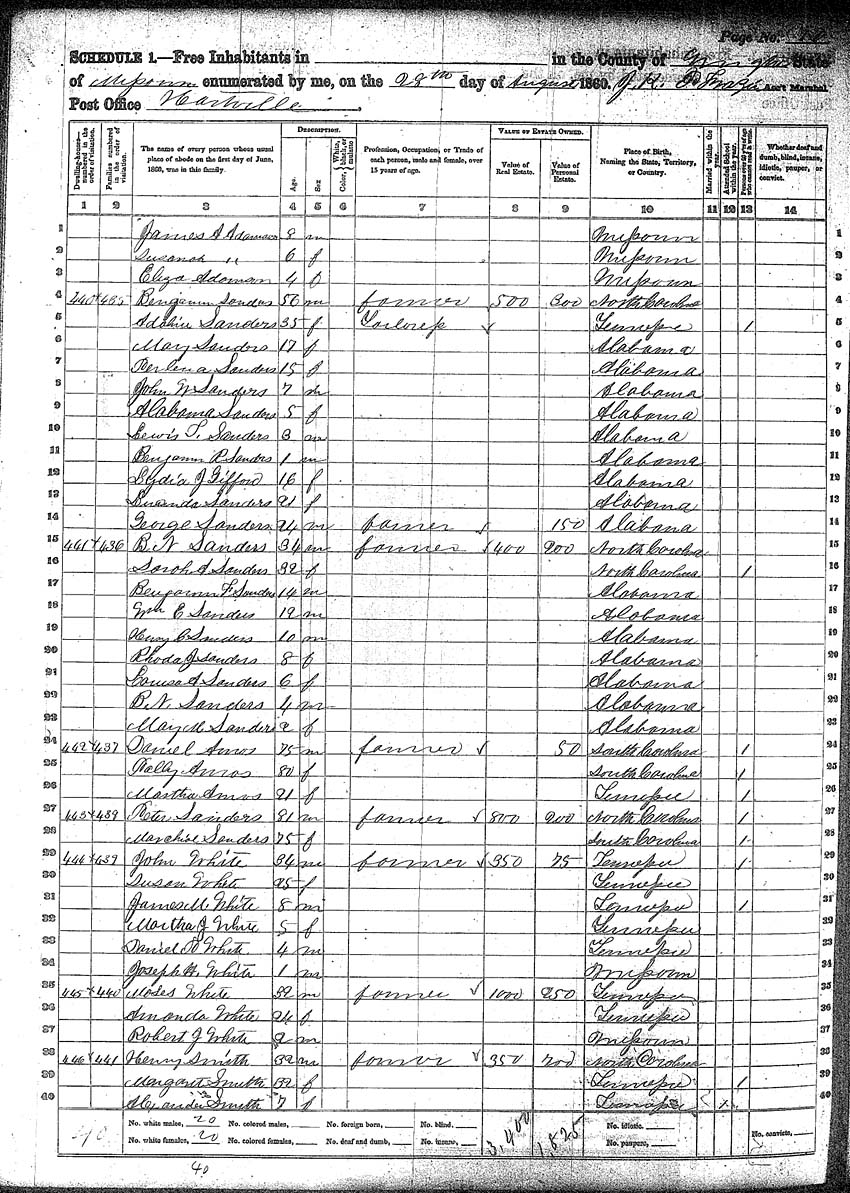 Page No.
SCHEDULE 1.—Free Inhabitants in in the County of Wright State
of Missouri enumerated by me, on the 28th day of August 1860. J. R. Ass't Marshal
Post Office Hartville
Dwelling-house—numbered in the order of visitation.
Families numbered in the order of visitation.
The name of every person whose usual place of abode on the first day of June, 1860, was in this family.
DESCRIPTION.
Age.
Sex
Color, White, black, or mulatto
Profession, Occupation, or Trade of each person, male and female, over 15 years of age.
VALUE OF ESTATE OWNED.
Value of Real Estate.
Value of Personal Estate.
Place of Birth, Naming the State, Territory, or Country.
Married within the year.
Attended School within the year.
Persons over 20 y'rs of age who cannot read & write.
Whether deaf and dumb, blind, insane, idiotic, pauper, or convict.
1 2 3 4 5 6 7 8 9 10 11 12 13 14
1 James A Adamson 8 m Missouri 1
2 Susanah " 6 f Missouri 2
3 Eliza Adamson 4 f Missouri 3
4 440 435 Benjamin Sanders 56 m farmer 500 300 North Carolina 4
5 Adaline Sanders 35 f Tailoress Tennessee 1 5
6 Mary Sanders 17 f Alabama 6
7 Sanders 15 f Alabama 7
8 John W Sanders 7 m Alabama 8
9 Alabama Sanders 5 f Alabama 9
10 Lewis T. Sanders 3 m Alabama 10
11 Benjamin R Sanders 1 m Alabama 11
12 Lydia J Gifford 16 f Alabama 12
13 Sanders 21 f Alabama 13
14 George Sanders 24 m farmer 150 Alabama 14
15 441 436 B. N Sanders 34 m farmer 400 200 North Carolina 15
16 Sarah A Sanders 32 f North Carolina 1 16
17 Benjamin F Sanders 14 m Alabama 17
18 Wm E Sanders 12 m Alabama 18
19 Henry C Sanders 10 m Alabama 19
20 Rhoda J Sanders 8 f Alabama 20
21 Louisa A Sanders 6 f Alabama 21
22 B. N. Sanders 4 m Alabama 22
23 Mary M Sanders 2 f Alabama 23
24 442 437 Daniel Amos 75 m farmer 50 South Carolina 1 24
25 Amos 80 f South Carolina 1 25
26 Martha Amos 21 f Tennessee 1 26
27 443 439 Peter Sanders 81 m farmer 800 200 North Carolina 1 27
28 Sanders 75 f South Carolina 1 28
29 444 439 John White 34 m farmer 350 75 Tennessee 1 29
30 Susan White 25 f Tennessee 30
31 James M. White 8 m Tennessee 1 31
32 Martha J White 5 f Tennessee 32
33 Daniel White 4 m Tennessee 33
34 Joseph H. White 1 m Missouri 34
35 445 440 Moses White 32 m farmer 1000 250 Tennessee 35
36 Amanda White 24 f Tennessee 36
37 Robert J White 2 m Missouri 37
38 446 441 Henry Smith 32 m farmer 350 200 North Carolina 38
39 Margaret Smith 32 f Tennessee 1 39
40 Alexander Smith 7 f Tennessee 40
No. white males, 20 No. colored males, No. foreign born, No. blind, 3,400 1,825 No. idiotic, No. convicts,
No. white females, 20 No. colored females, No. deaf and dumb, No. insane, No. paupers,
40